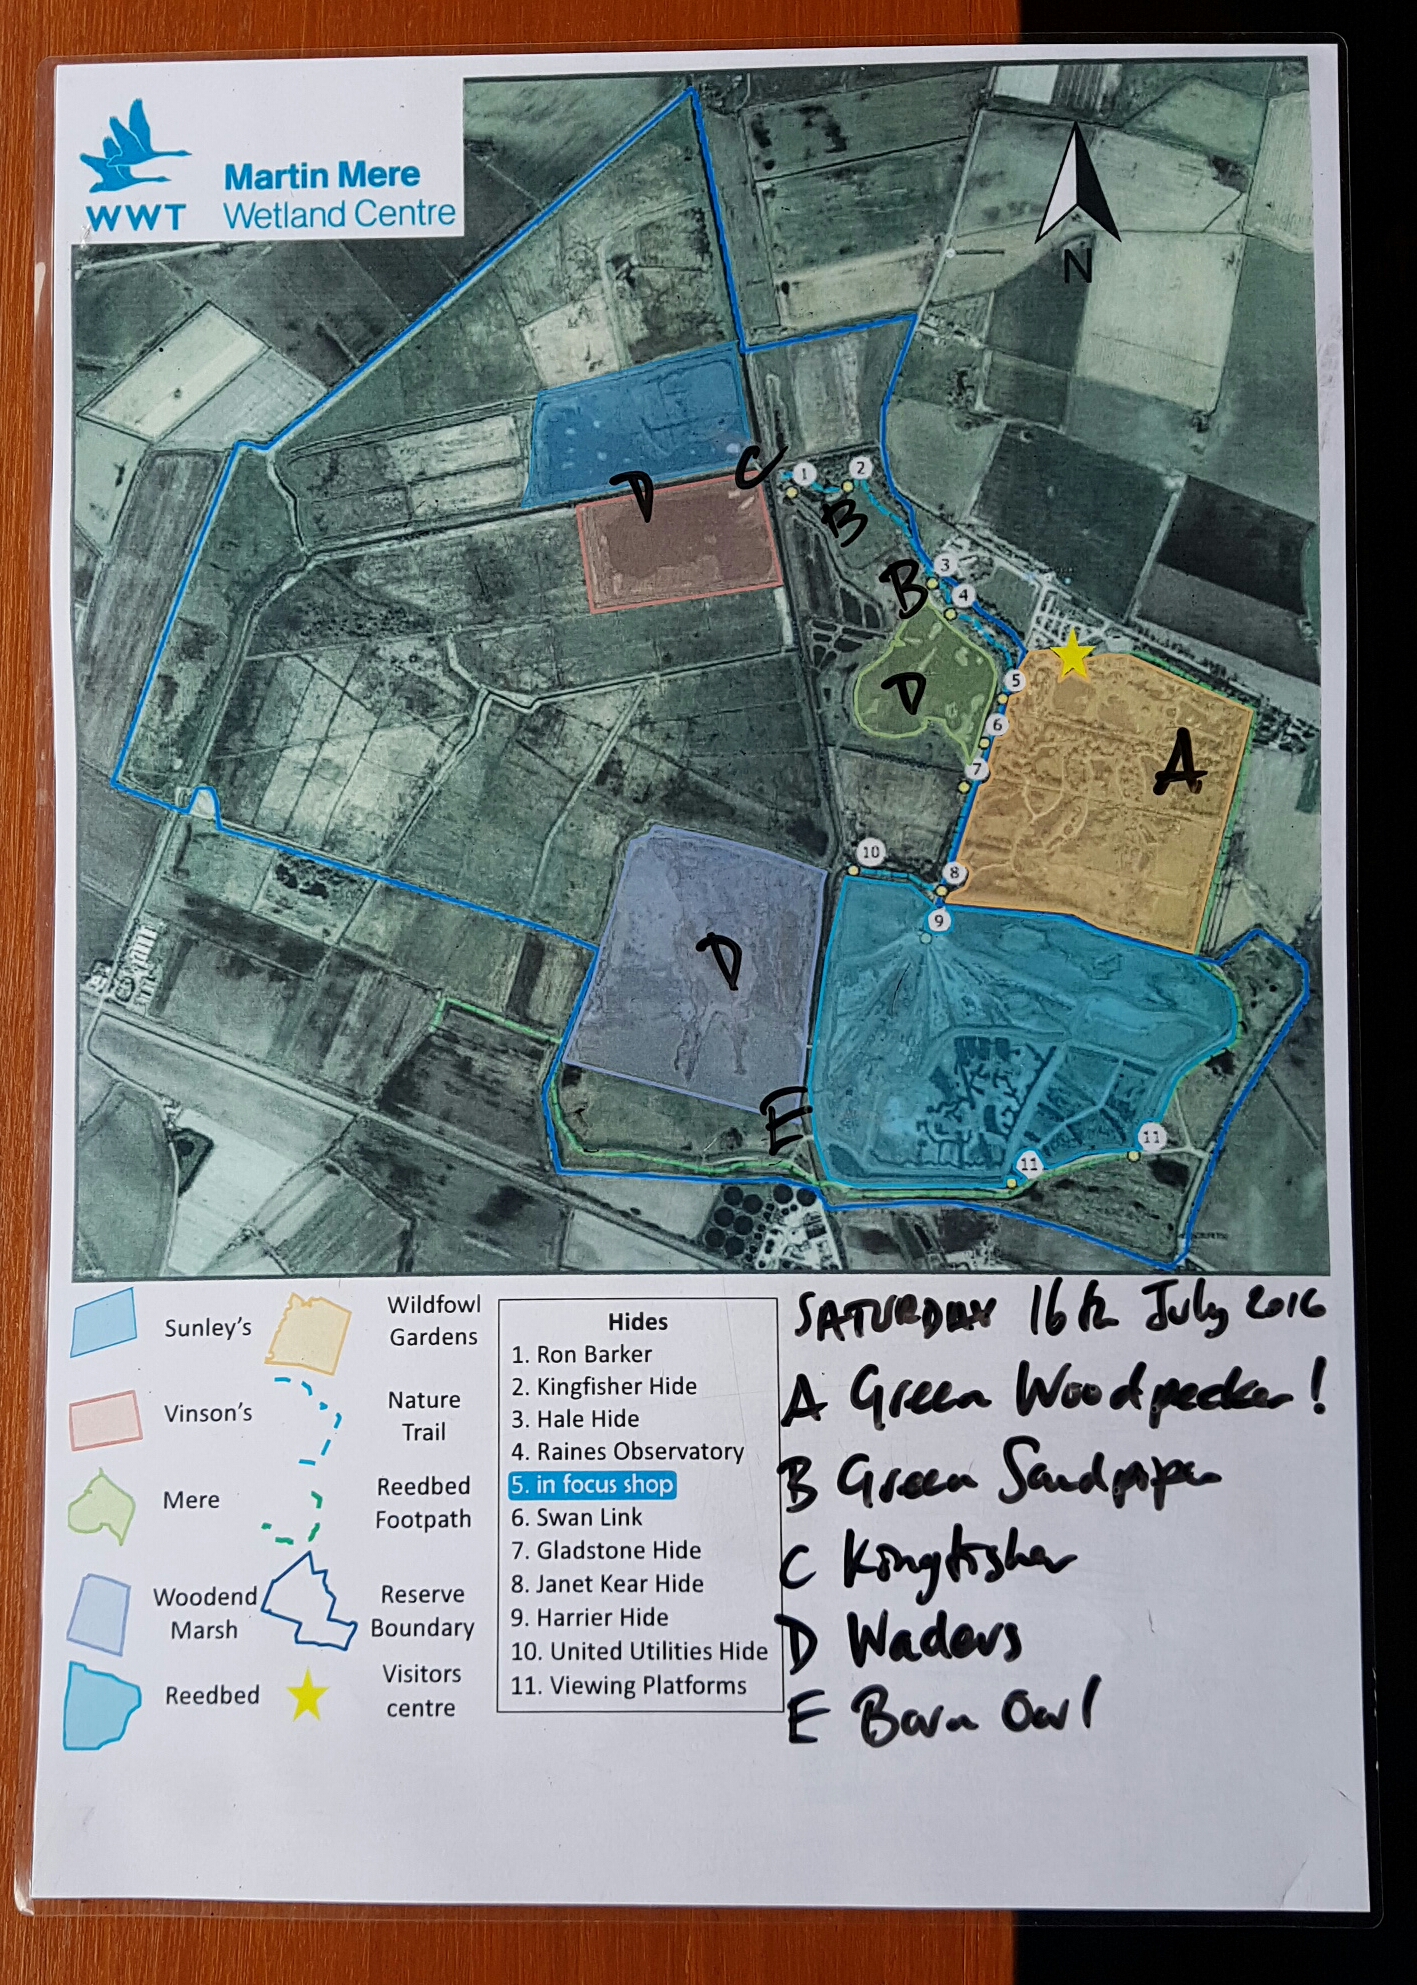 WWT
Martin Mere
Wetland Centre
N
C
D
1
2
B
B
3
4
D
5
6
7
A
10
8
9
D
E
11
11
Sunley's
Vinson's
Mere
Woodend
Marsh
Reedbed
Wildfowl
Gardens
Nature
Trail
Reedbed
Footpath
Reserve
Boundary
Visitors
centre
Hides
1. Ron Barker
2. Kingfisher Hide
3. Hale Hide
4. Raines Observatory
5. in focus shop
6. Swan Link
7. Gladstone Hide
8. Janet Kear Hide
9. Harrier Hide
10. United Utilities Hide
11. Viewing Platforms
SATURDAY 16th July 2016
A Green Woodpecker!
B Green Sandpiper
C Kingfisher
D Waders
E Barn Owl